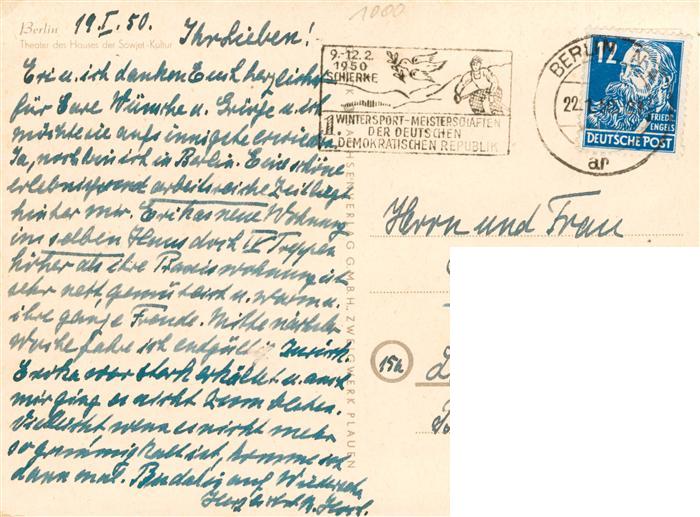 Berlin 19.I.50.
Theater des Hauses der Sowjet-Kultur
Ihr Lieben!
Eri u. ich danken Euch herzlichst
für Eure Wünsche u. Grüße u. ich
möchte sie aufs innigste erwidern.
Ja, noch bin ich in Berlin. Eine schöne
erlebnis- arbeitsreiche Zeit liegt
hinter mir. Erikas neue Wohnung
im selben Haus doch IV Treppen
höher als ihre Praxiswohnung ist
sehr nett, gemütlich u. warm u.
ihre ganze Freude. Mitte nächster
Woche fahre ich endgültig zurück.
Erika war stark erkältet u. auch
mir ging es nicht zum besten.
Vielleicht wenn es nicht mehr
so grimmig kalt ist, komme ich
dann mal. Bis dahin auf Wiedersehn
Herzlichst
9.-12.2.
1950
SCHIERKE
1. WINTERSPORT-MEISTERSCHAFTEN
DER DEUTSCHEN
DEMOKRATISCHEN REPUBLIK
BERLIN
22.1.
ar
12
FRIEDR.
ENGELS
DEUTSCHE POST
VERLAG GMBH, ZWEIGWERK PLAUEN
Herrn und Frau
15a
1000